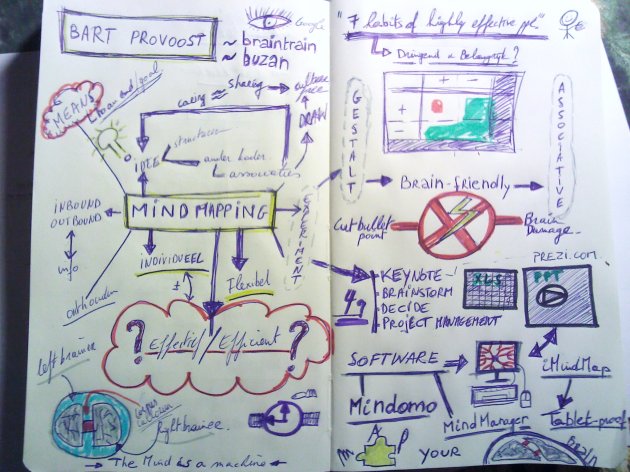 BART PROVOOST
Google
~ braintrain
~ buzan
MEANS
to an end/goal
caring
sharing
DRAW
IDEE
structuur
associaties
INBOUND
OUTBOUND
MIND MAPPING
EXPERIMENT
info
onthouden
INDIVIDUEEL
±
Flexibel
? Effectief / Efficient ?
left brainer
corpus
right brainer
→ The Mind is a machine ←
"7 habits of highly effective ppl"
Dringend x Belangrijk?
+ -
+
-
GESTALT
ASSOCIATIVE
Brain-friendly
Cut bullet
point
Brain
Damage
PREZI.COM
KEYNOTE
BRAINSTORM
DECIDE
PROJECT MANAGEMENT
XLS
PPT
SOFTWARE
iMindMap
Mindomo
MindManager
Tablet-proof
MAP YOUR
BRAIN